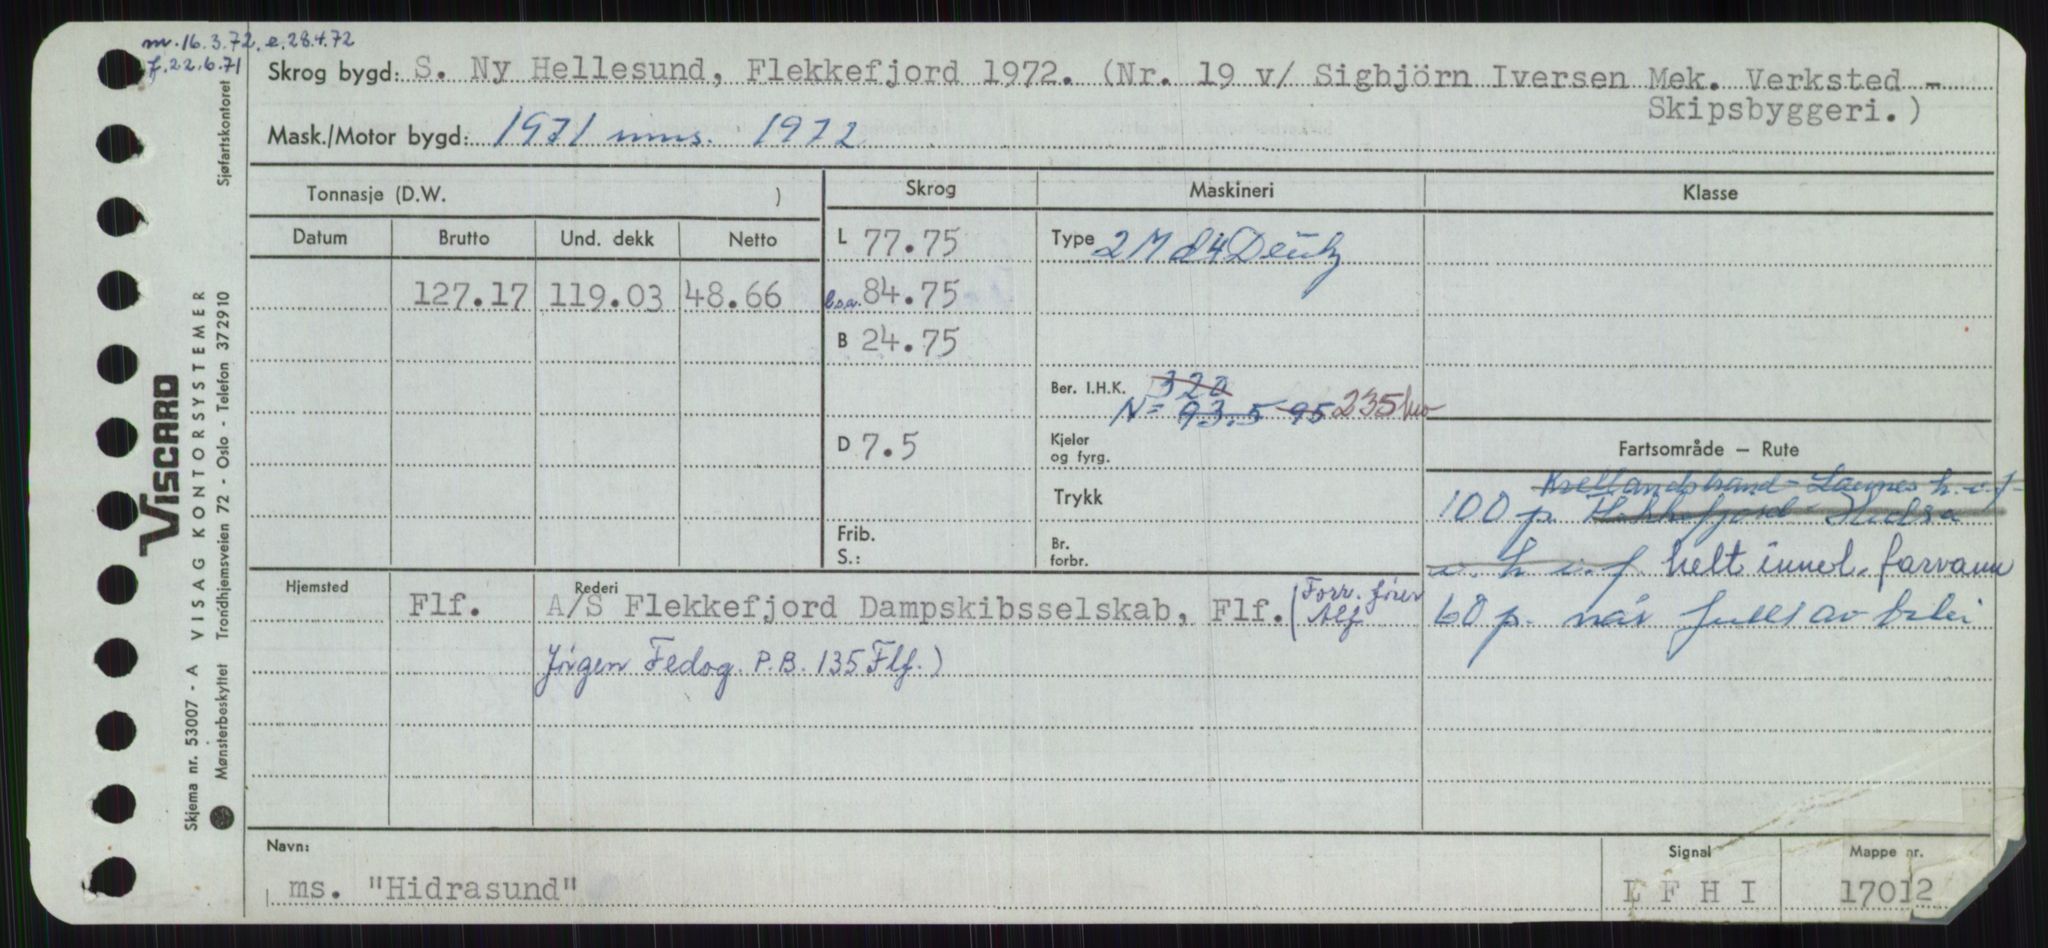 m. 16.3.72. e. 28.4.72
f. 22.6.71
Skrog bygd: S. Ny Hellesund, Flekkefjord 1972. (Nr. 19 v/ Sigbjörn Iversen Mek. Verksted -
Skipsbyggeri.)
Mask./Motor bygd: 1971 mms. 1972
Tonnasje (D.W. )
Skrog
Maskineri
Klasse
Datum Brutto Und. dekk Netto
L 77.75
Type 2 M d4 Deutz
127.17 119.03 48.66
l.o.a. 84.75
B 24.75
Ber. I.H.K. 320
N = 93.5 95 235 kw
D 7.5
Kjeler
og fyrg.
Fartsområde — Rute
Trykk
h.v.f
100 p. Flekkefjord - Hidra
Frib.
S.:
Br.
forbr.
v. h v. f. helt innel. farvann
Hjemsted
Rederi
Flf. A/S Flekkefjord Dampskibsselskab, Flf. (Forr. fører
Alf
60 p. når
Jörgen Fedog. P.B. 135 Flf.)
Navn:
ms. "Hidrasund"
Signal
L F H I
Mappe nr.
17012
Sjøfartskontoret
VISCARD
VISAG KONTORSYSTEMER
Skjema nr. 53007 - A
Trondhjemsveien 72 - Oslo - Telefon 372910
Mønsterbeskyttet